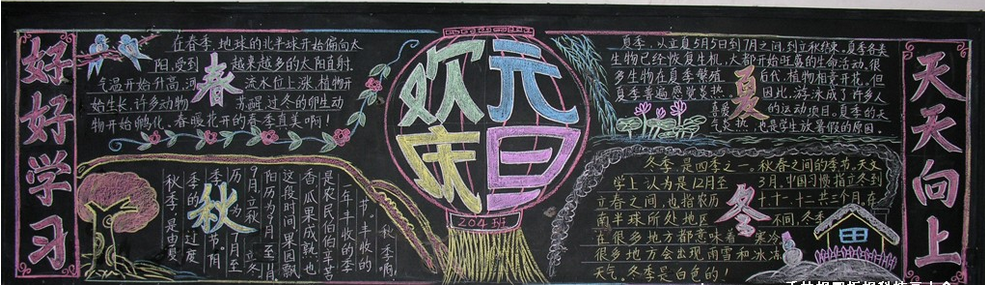 好好学习
在春季,地球的北半球开始偏向太
阳,受到越来越多的太阳直射
气温开始升高,河流水位上涨,植物开
始生长,许多动物苏醒,过冬的卵生动
物开始孵化,春暖花开的春季真美啊!
春
欢庆元旦
204班
夏季,以立夏5月5日到7月之间,到立秋结束,夏季各类
生物已经恢复生机,大都开始旺盛的生命活动,很
多生物在夏季繁殖后代,植物相竞开花,但
夏季普遍感觉炎热,因此,游泳成了许多人
喜爱的运动项目。夏季的天
气炎热,也是学生放暑假的原因。
夏
天天向上
秋
秋季,
一年丰收的季节。丰收的
是农民伯伯辛苦
香,瓜果成熟,也
这段时间,果园飘
阳历为9月至11月
冬季是四季之一。秋春之间的季节。天文
学上认为是12月至3月,中国习惯指立冬到
立春之间,也指农历十,十一,十二共三个月,在
南半球所处地区不同,冬季
在很多地方都意味着寒冷
很多地方会出现雨雪和冰冻
天气。冬季是白色的!
冬